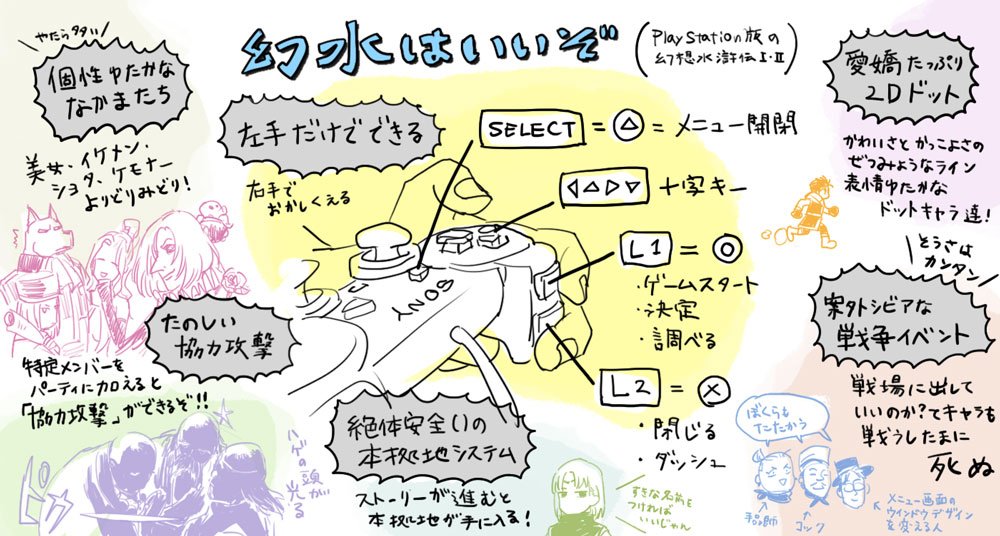 幻水はいいぞ
(PlayStation版の
幻想水滸伝I・II)
やたら多い
個性ゆたかな
なかまたち
美女、イケメン、
ショタ、ケモナー
よりどりみどり!
左手だけでできる
右手で
おかしくえる
SELECT = △ = メニュー開閉
◁△▷▽ 十字キー
L1 = ○
・ゲームスタート
・決定
・調べる
L2 = ×
・閉じる
・ダッシュ
SONY
愛嬌たっぷり
2Dドット
かわいさとかっこよさの
ぜつみょうなライン
表情ゆたかな
ドットキャラ達!
たのしい
協力攻撃
特定メンバーを
パーティに加えると
「協力攻撃」ができるぞ!!
ハゲの頭が
光る
絶体安全(!)の
本拠地システム
ストーリーが進むと
本拠地が手に入る!
すきな名前を
つければ
いいじゃん
とうさは
カンタン
案外シビアな
戦争イベント
戦場に出して
いいのか?てキャラも
戦うしたまに
死ぬ
ぼくらも
たたかう
コック
メニュー画面の
ウインドウデザイン
を変える人